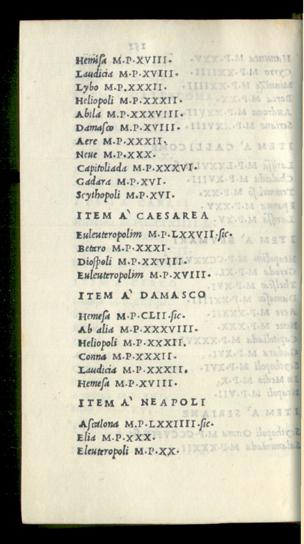 Hemisa M.P.XVIII.
Laudicia M.P.XVIII.
Lybo M.P.XXXII.
Heliopoli M.P.XXXII.
Abila M.P.XXXVIII.
Damasco M.P.XVIII.
Aere M.P.XXXII.
Neue M.P.XXX.
Capitoliada M.P.XXXVI.
Gadara M.P.XVI.
Scythopoli M.P.XVI.
ITEM A' CAESAREA
Euleuteropolim M.P.LXXVII.sic.
Betero M.P.XXXI.
Diospoli M.P.XXVIII.
Euleuteropolim M.P.XVIII.
ITEM A' DAMASCO
Hemesa M.P.CLII.sic.
Ab alia M.P.XXXVIII.
Heliopoli M.P.XXXII.
Conna M.P.XXXII.
Laudicia M.P.XXXII.
Hemesa M.P.XVIII.
ITEM A' NEAPOLI
Ascalona M.P.LXXIIII.sic.
Elia M.P.XXX.
Eleuteropoli M.P.XX.